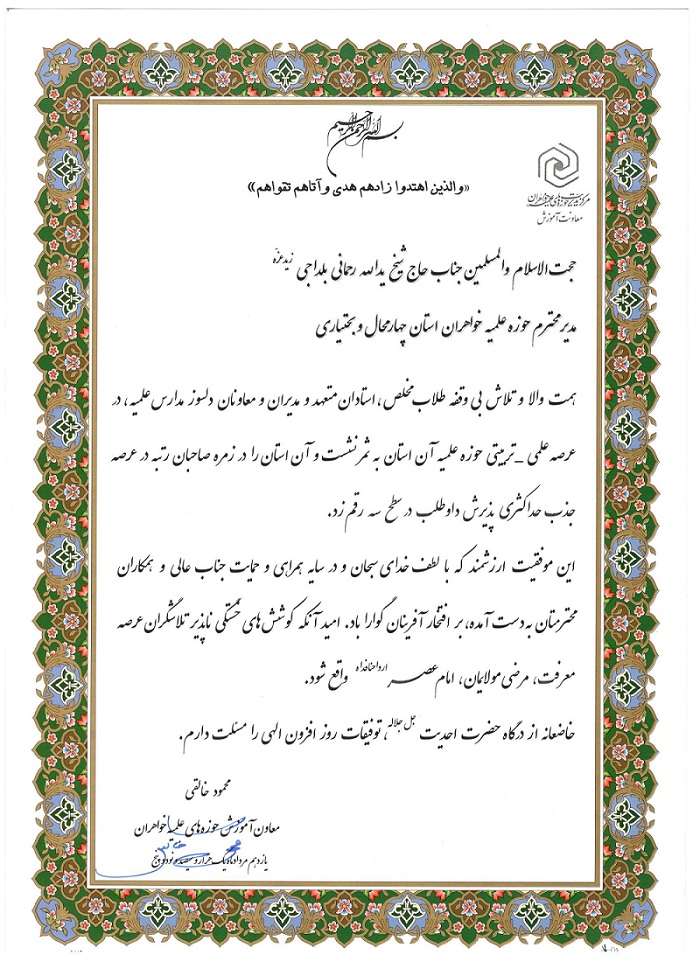 بسم الله الرحمن الرحیم
«والذین اهتدوا زادهم هدی و آتاهم تقواهم»
مرکز مدیریت حوزه‌های علمیه خواهران
معاونت آموزش
حجت الاسلام والمسلمین جناب حاج شیخ یدالله رحمانی بلداجی زید عزّه
مدیر محترم حوزه علمیه خواهران استان چهارمحال و بختیاری
همت والا و تلاش بی وقفه طلاب مخلص، استادان متعهد و مدیران و معاونان دلسوز مدارس علمیه، در
عرصه علمی - تربیتی حوزه علمیه آن استان به ثمر نشست و آن استان را در زمره صاحبان رتبه در عرصه
جذب حداکثری پذیرش داوطلب در سطح سه رقم زد.
این موفقیت ارزشمند که با لطف خدای سبحان و در سایه همراهی و حمایت جناب عالی و همکاران
محترمتان به دست آمده، بر افتخار آفرینان گوارا باد. امید آنکه کوشش‌های خستگی ناپذیر تلاشگران عرصه
معرفت، مرضی مولایمان، امام عصر ارواحنا فداه واقع شود.
خاضعانه از درگاه حضرت احدیت جل جلاله، توفیقات روز افزون الهی را مسئلت دارم.
محمود خالقی
معاون آموزش حوزه‌های علمیه خواهران
یازدهم مردادماه یک هزار و سیصد و نود و پنج